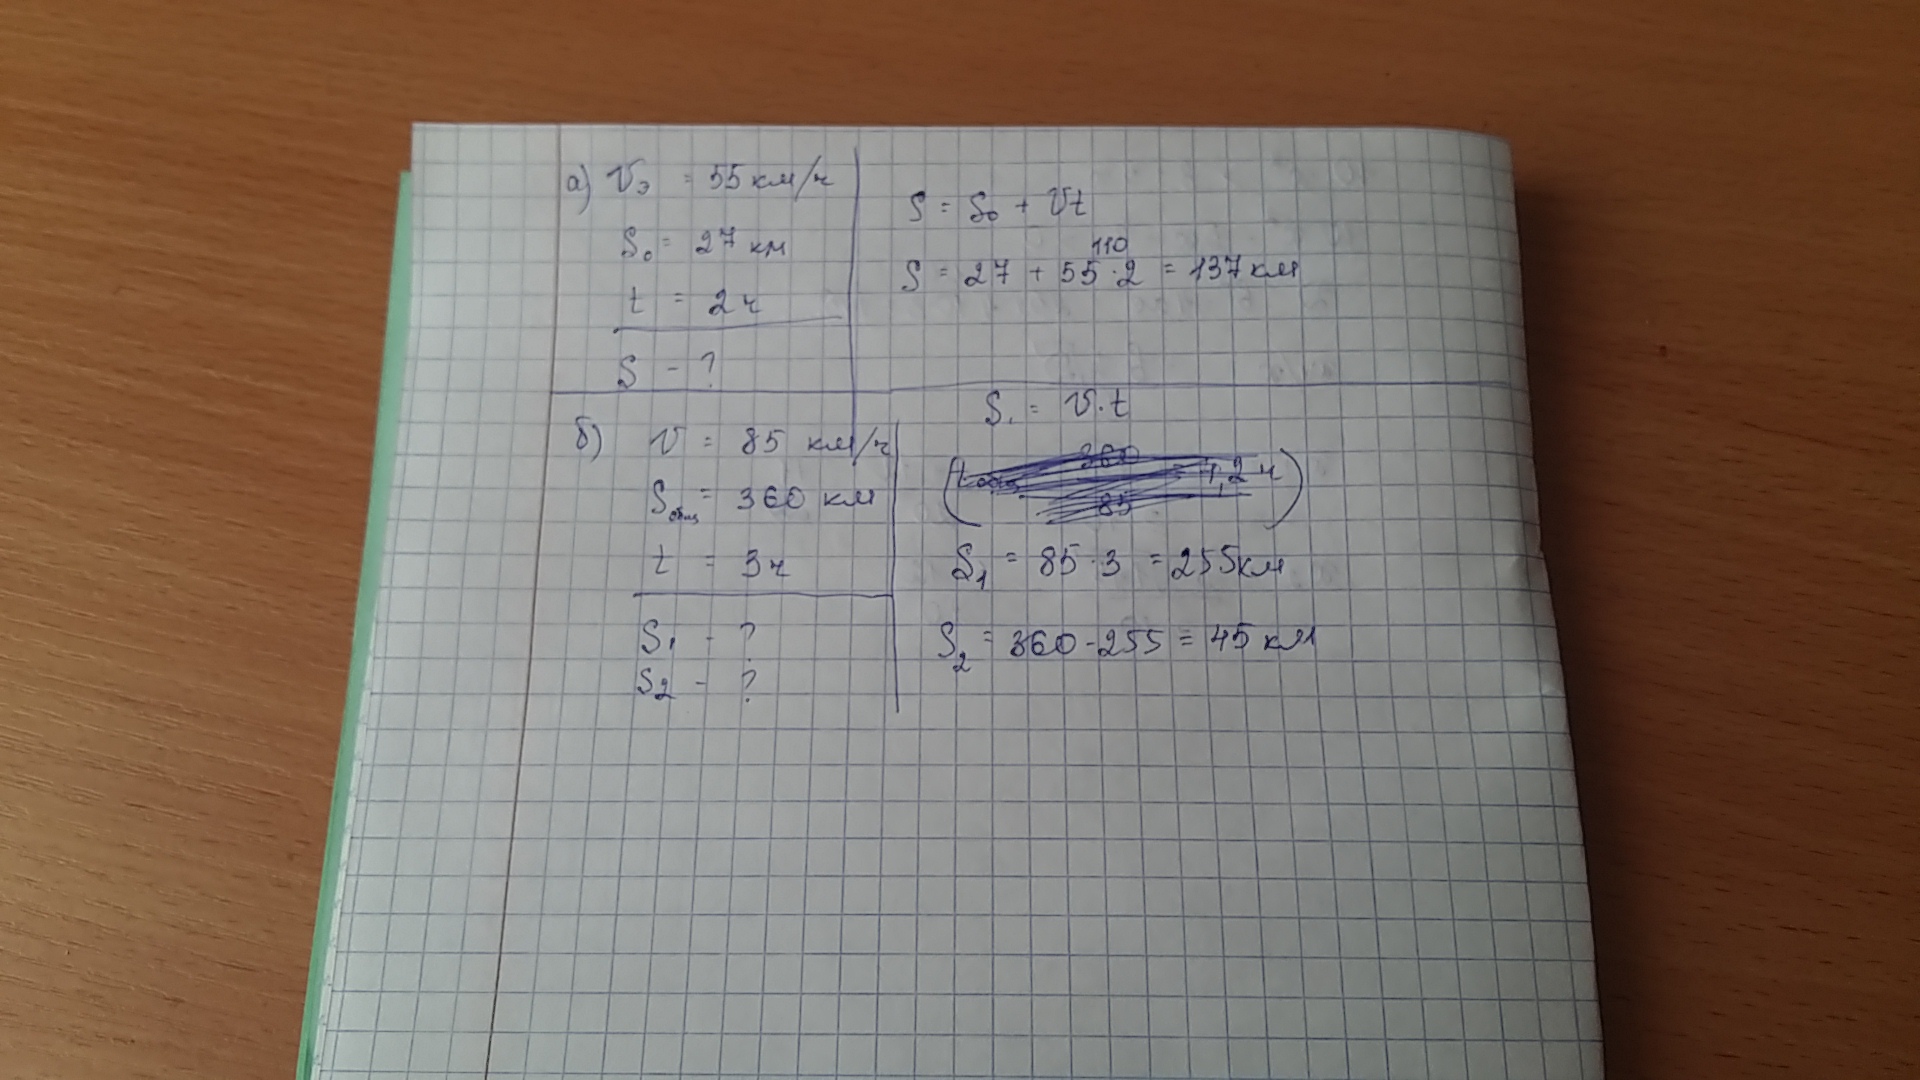 а) Vэ = 55 км/ч
S₀ = 27 км
t = 2 ч
S - ?
S = S₀ + Vt
110
S = 27 + 55 · 2 = 137 км
б) V = 85 км/ч
Sобщ = 360 км
t = 3 ч
S₁ - ?
S₂ - ?
S₁ = V · t
360
(tобщ = 4,2 ч)
85
S₁ = 85 · 3 = 255 км
S₂ = 360 - 255 = 45 км